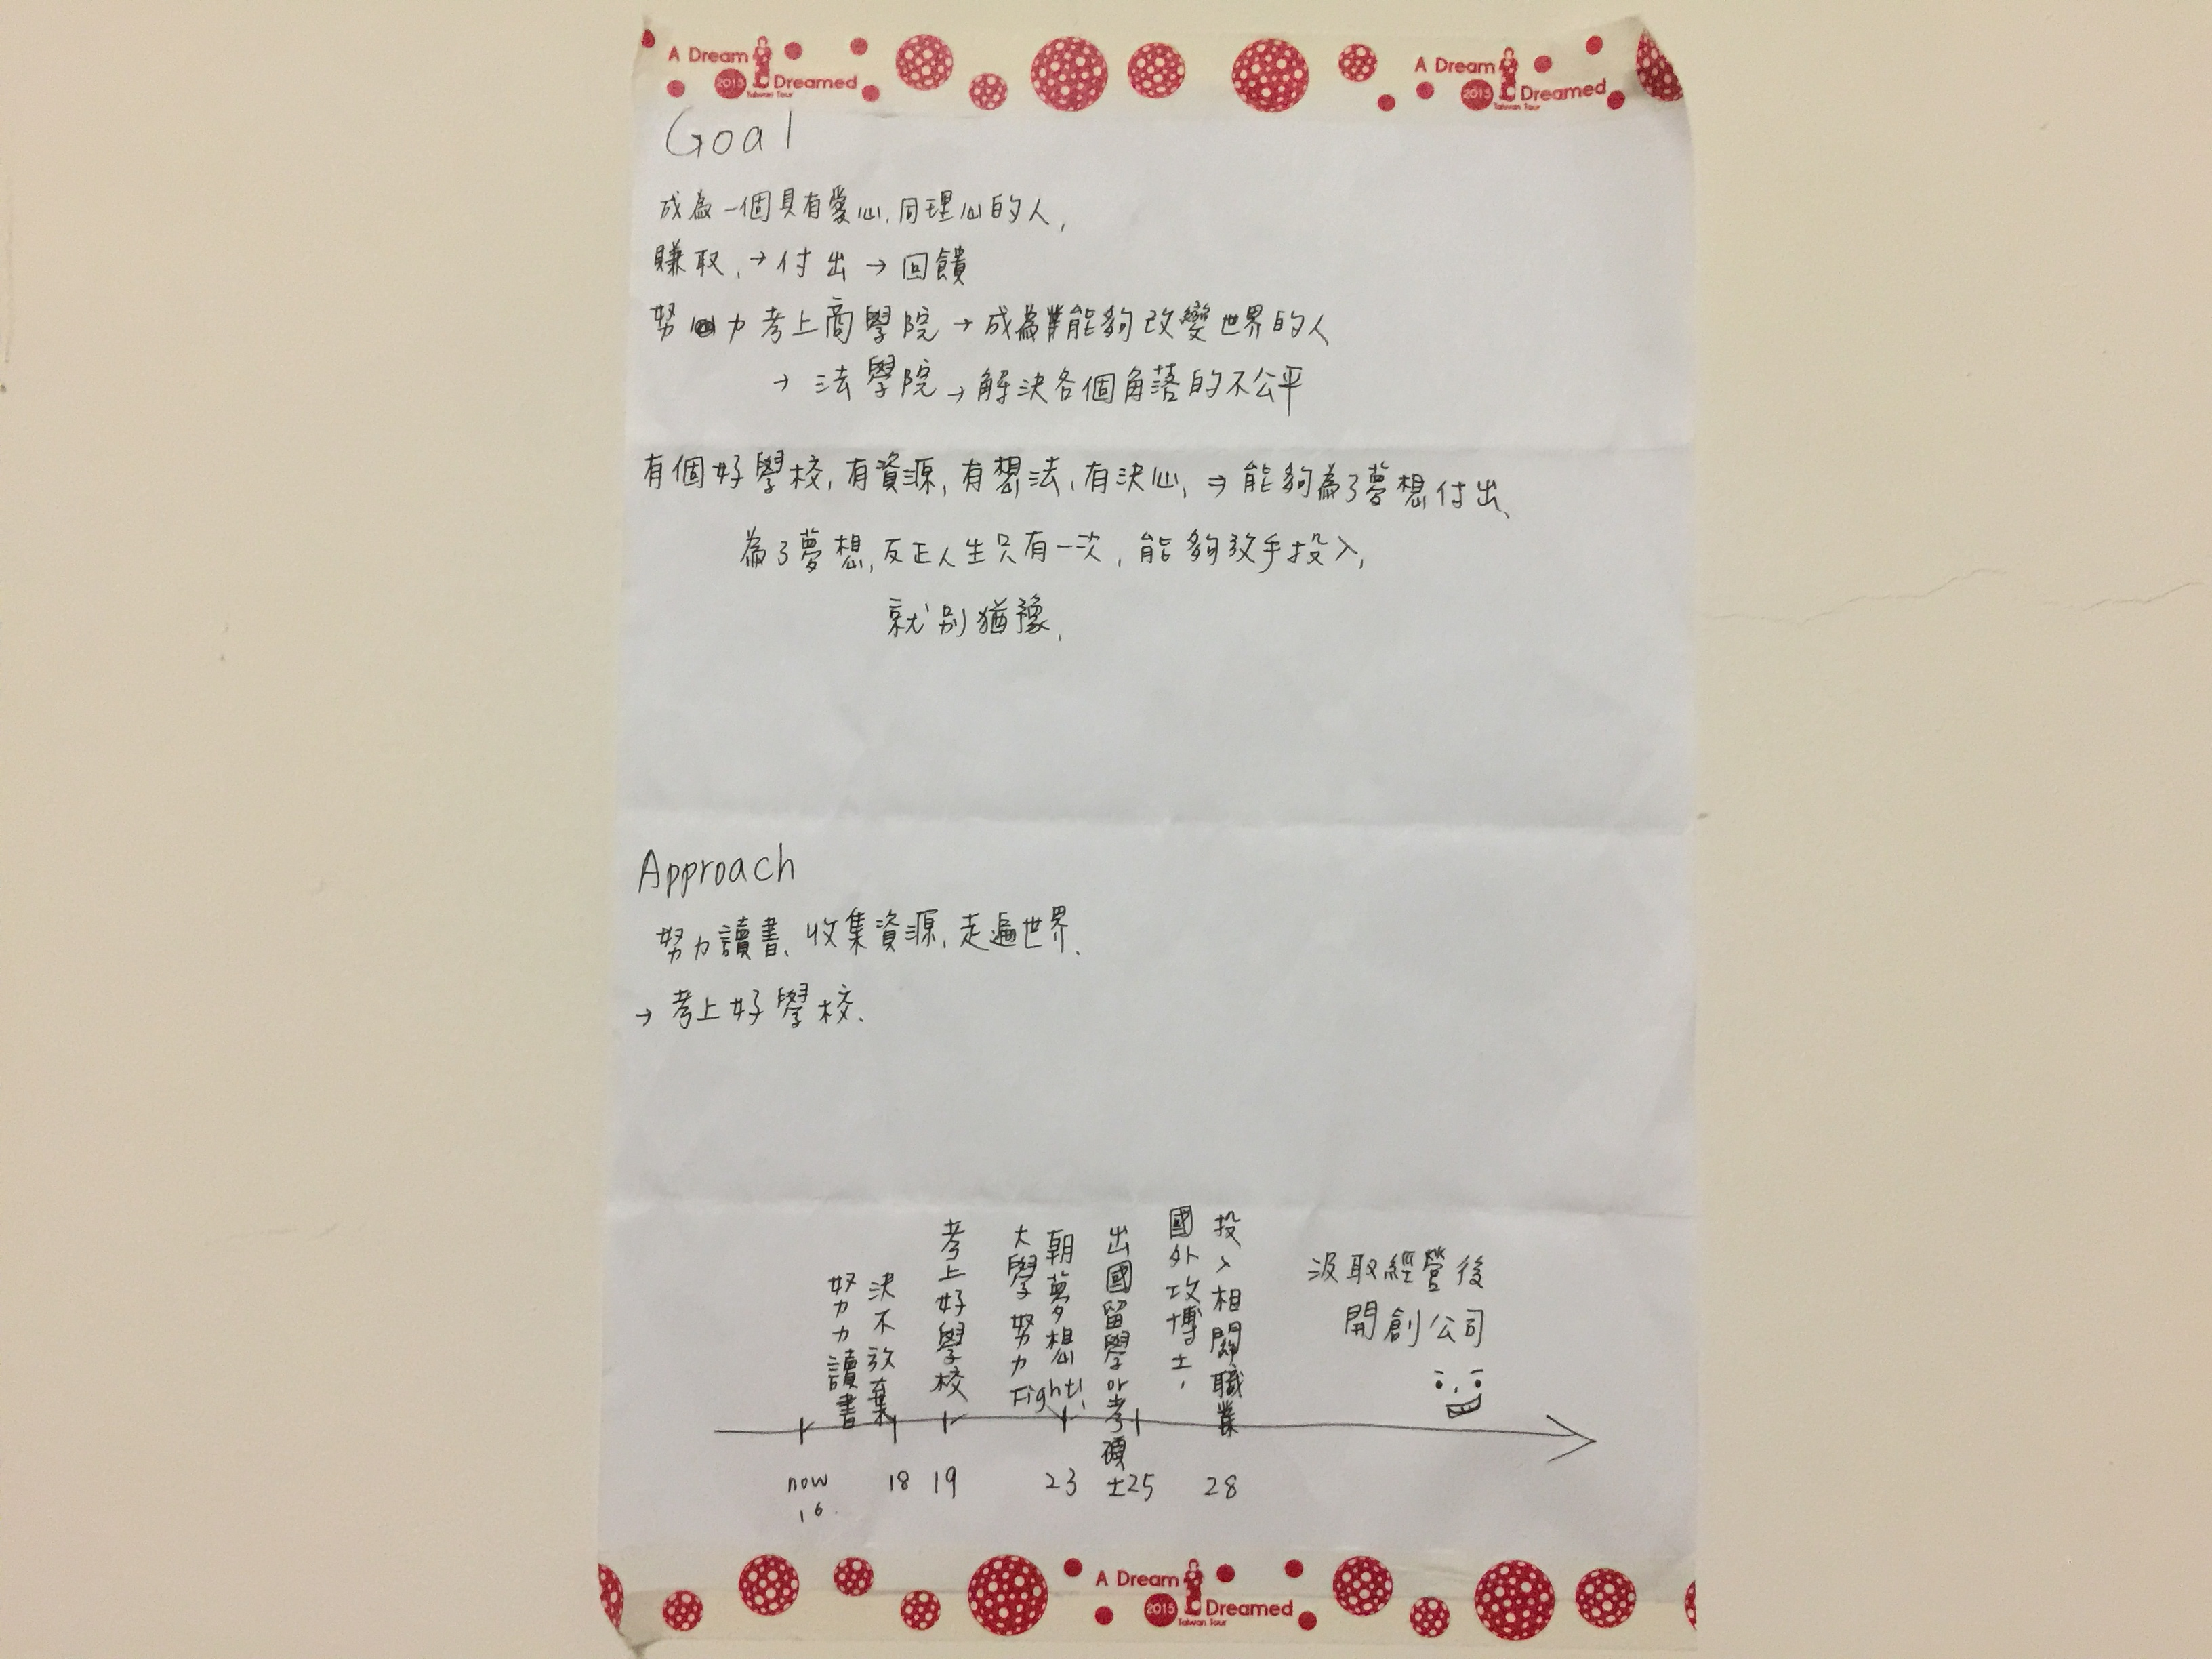 A Dream
2015 Dreamed
Taiwan Tour
A Dream
2015 Dreamed
Taiwan Tour
Goal
成為一個具有愛心,同理心的人,
賺取,→付出→回饋
努力考上商學院→成為能夠改變世界的人
→法學院→解決各個角落的不公平
有個好學校,有資源,有想法,有決心,⇒能夠為了夢想付出、
為了夢想,反正人生只有一次,能夠放手投入,
就別猶豫,
Approach
努力讀書、收集資源,走遍世界、
→考上好學校、
努力力讀書
決不放棄
考上好學校
大學努力Fight!
朝夢想
出國留學or考碩士
國外攻博士,
投入相關職業
汲取經營後
開創公司
now
16
18
19
23
25
28
A Dream
2015 Dreamed
Taiwan Tour